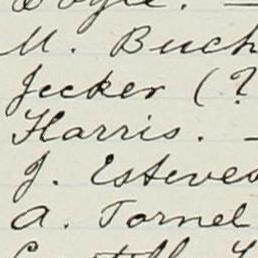 M. Buch
Jecker (?
Harris. -
J. Esteves
A. Tornel